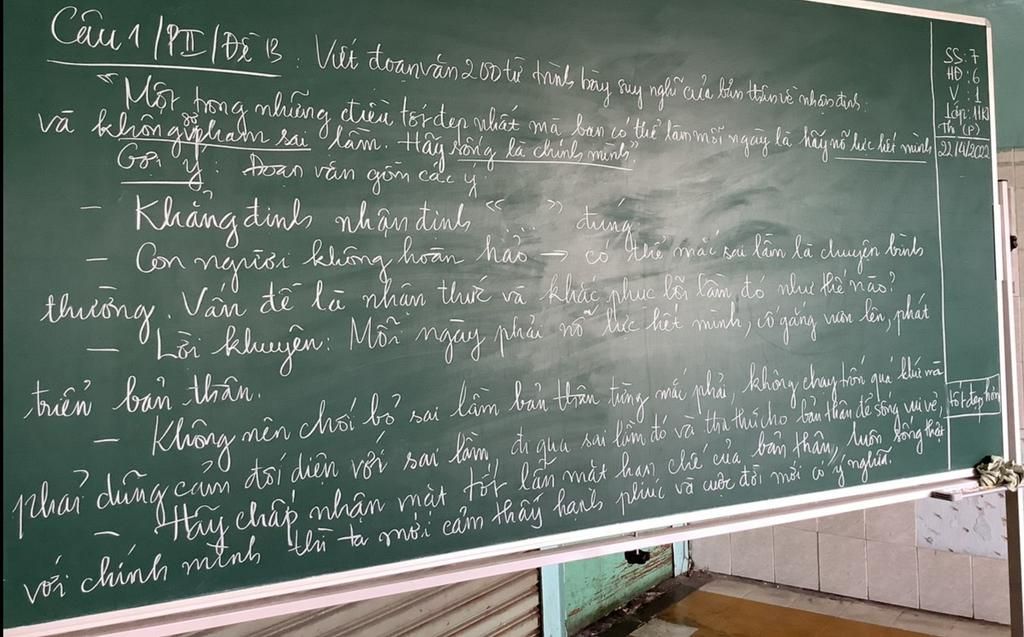 Câu 1/PII/Đề B: Viết đoạn văn 200 từ trình bày suy nghĩ của bản thân về nhận định:
"Một trong những điều tốt đẹp nhất mà bạn có thể làm mỗi ngày là hãy nỗ lực hết mình
và không phạm sai lầm. Hãy sống là chính mình"
Gợi ý: Đoạn văn gồm các ý:
- Khẳng định nhận định "..." đúng
- Con người không hoàn hảo → có thể mắc sai lầm là chuyện bình
thường. Vấn đề là nhận thức và khắc phục lỗi lầm đó như thế nào?
- Lời khuyên: Mỗi ngày phải nỗ lực hết mình, cố gắng vươn lên, phát
triển bản thân.
- Không nên chối bỏ sai lầm bản thân từng mắc phải, không chạy trốn quá khứ mà
phải dũng cảm đối diện với sai lầm, đi qua sai lầm đó và tha thứ cho bản thân để sống vui vẻ,
- Hãy chấp nhận mặt tốt lẫn mặt hạn chế của bản thân, luôn sống thật
với chính mình thì ta mới cảm thấy hạnh phúc và cuộc đời mới có ý nghĩa.
SS: 7
HĐ: 6
V: 1
Lớp: 11
Th (P)
22/4/2022
tốt đẹp hơn